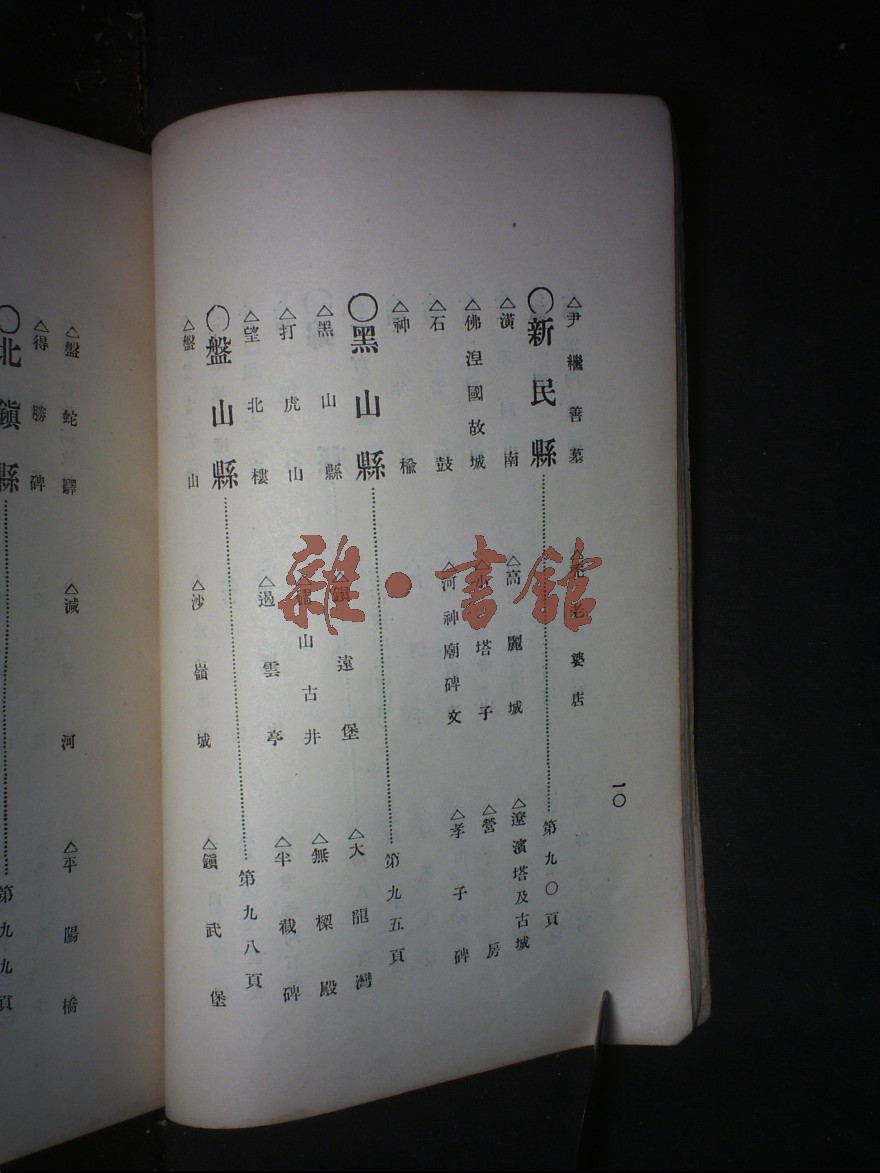 △尹繼善墓 △老婆店
○新民縣……第九〇頁
△潢南 △高麗城 △遼濱塔及古城
△佛湼國故城 △小塔子 △營房
△石鼓 △河神廟碑文 △孝子碑
△神楡
○黑山縣……第九五頁
△黑山縣 △鎭遠堡 △大龍灣
△打虎山 山古井 △無樑殿
△望北樓 △過雲亭 △半截碑
○盤山縣……第九八頁
△盤山 △沙嶺城 △鎭武堡
一〇
△盤蛇驛 △減河 △平陽橋
△得勝碑
○北鎭縣……第九九頁
雜·書館